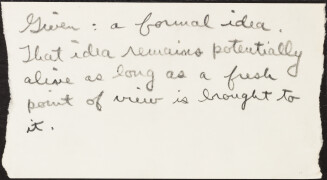 Given: a formal idea.
That idea remains potentially
alive as long as a fresh
point of view is brought to
it.